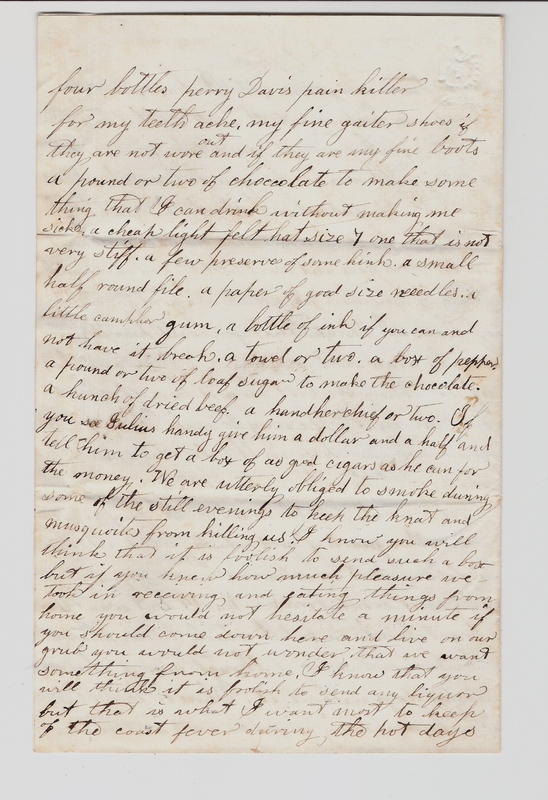 four bottles perry Davis pain killer
for my teeth ache, my fine gaiter shoes if
they are not wore out and if they are my fine boots
a pound or two of choccolate to make some
thing that I can drink without making me
sick, a cheap light felt hat size 7 one that is not
very stiff. a few preserve of some kink. a small
half round file. a paper of good size neeedles. a
little camphor gum, a bottle of ink if you can and
not have it break. a towel or two. a box of pepper,
a pound or two if loaf sugar to make the chocolate.
a hunch of dried beef. a handkerchief or two. If
you see Julius handy give him a dollar and a half and
tell him to get a box of as good cigars as he can for
the money. We are utterly obliged to smoke during
some of the still evenings to keek the knat and
musquito from killing us. I know you will
think that it is foolish to send such a box
but if you knew how much pleasure we
took in receiving and eating things from
home you would not hesitate a minute if
you should come down here and live on our
grub you would not wonder that we want
something from home. I know that you
will think it is foolish to send any liquor
but that is what I want most to keep
of the coast fever during the hot days